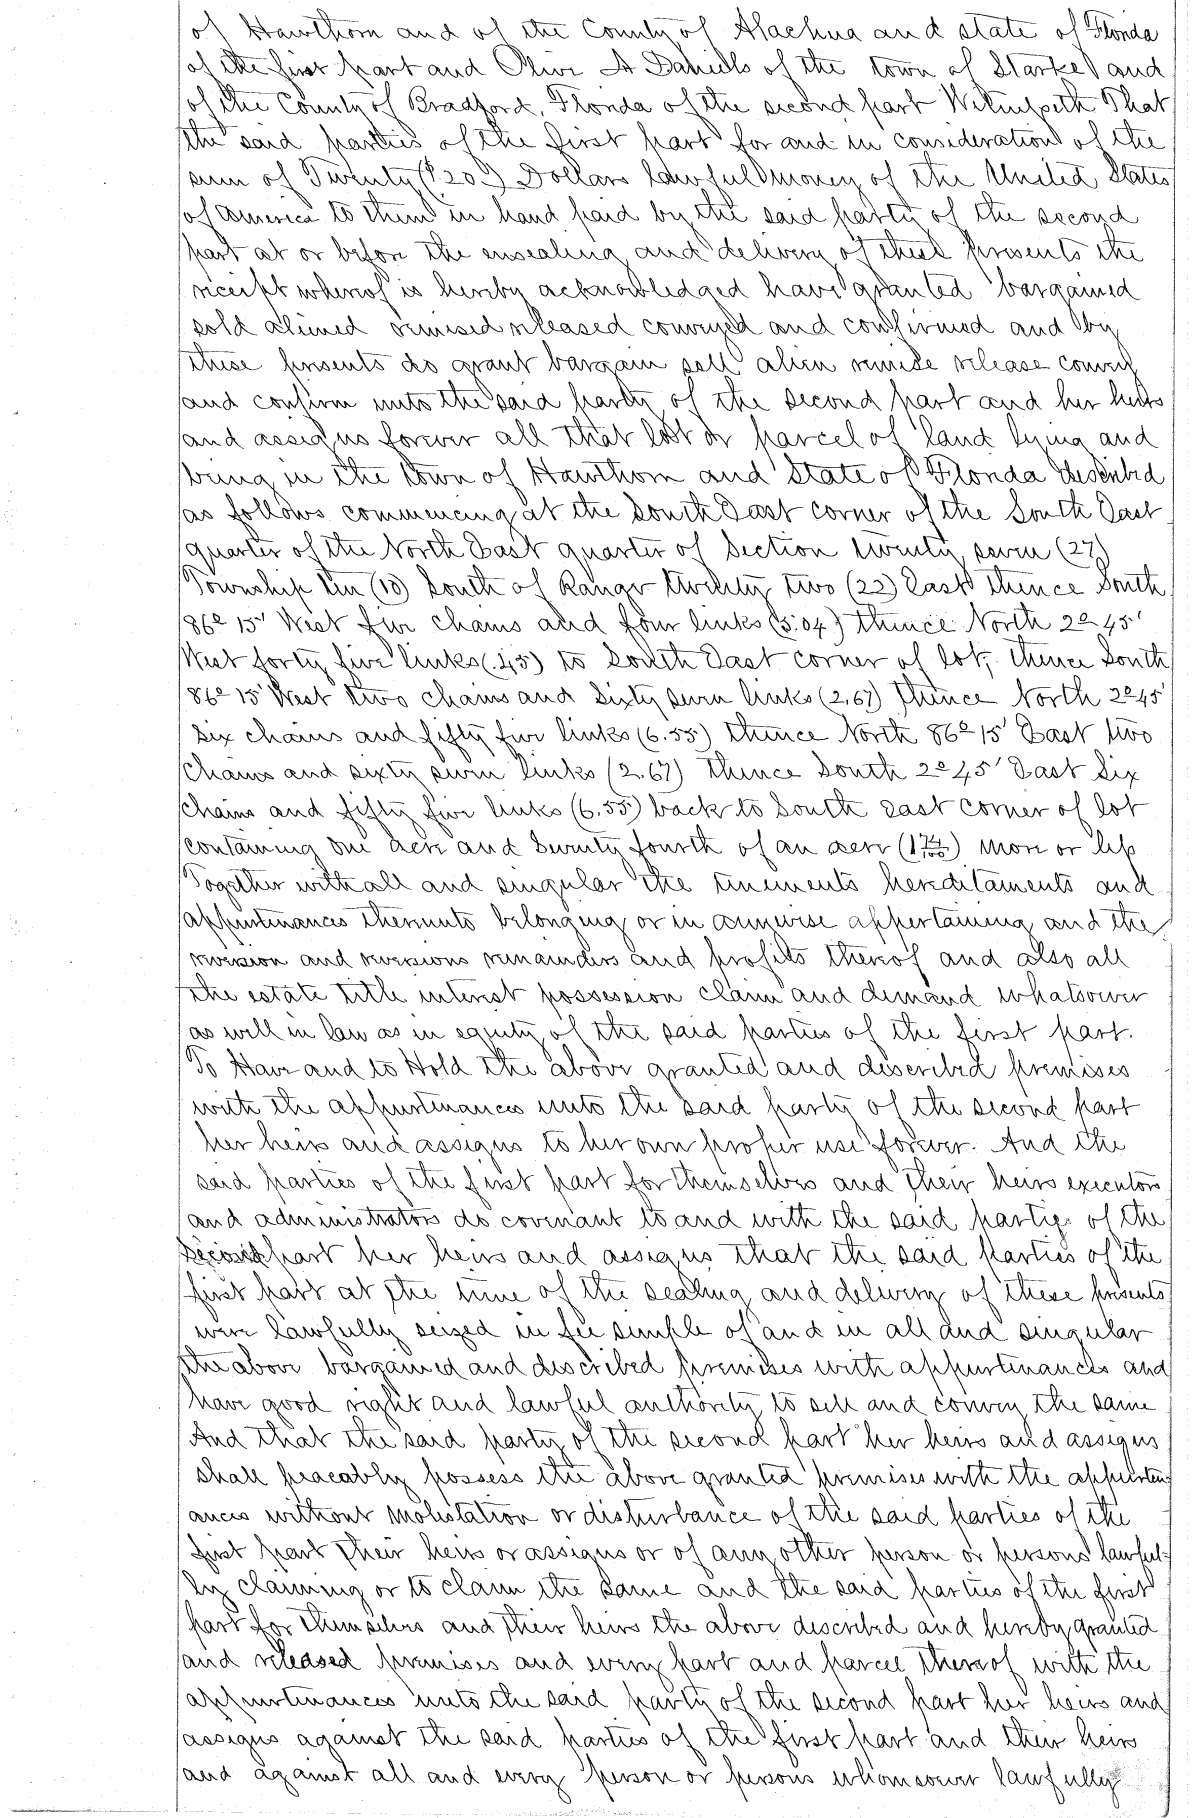 of Hawthorn and of the County of Alachua and state of Florida
of the first part and Olive A Daniels of the town of Starke and
of the County of Bradford, Florida of the second part Witnesseth That
the said parties of the first part for and in consideration of the
sum of Twenty ($20.) Dollars lawful money of the United States
of America to them in hand paid by the said party of the second
part at or before the ensealing and delivery of these presents the
receipt whereof is hereby acknowledged have granted bargained
sold aliened remised released conveyed and confirmed and by
these presents do grant bargain sell alien remise release convey
and confirm unto the said party of the second part and her heirs
and assigns forever all that lot or parcel of land lying and
being in the town of Hawthorn and State of Florida described
as follows commencing at the South East corner of the South East
quarter of the North East quarter of Section twenty seven (27)
Township ten (10) South of Range twenty two (22) East thence South
86° 15' West five chains and four links (5.04) thence North 2° 45'
West forty five links (.45) to South East corner of lot, thence South
86° 15' West two chains and sixty seven links (2.67) thence North 2° 45'
six chains and fifty five links (6.55) thence North 86° 15' East two
chains and sixty seven links (2.67) thence South 2° 45' East Six
chains and fifty five links (6.55) back to South east corner of lot
containing one acre and Seventy fourth of an acre (1 74/100) more or less
Together with all and singular the tenements hereditaments and
appurtenances thereunto belonging or in anywise appertaining and the
reversion and reversions remainders and profits thereof and also all
the estate title interest possession claim and demand whatsoever
as well in law as in equity of the said parties of the first part.
To Have and to Hold the above granted and described premises
with the appurtenances unto the said party of the second part
her heirs and assigns to her own proper use forever. And the
said parties of the first part for themselves and their heirs executors
and administrators do covenant to and with the said party of the
second part her heirs and assigns that the said parties of the
first part at the time of the sealing and delivery of these presents
were lawfully seized in fee simple of and in all and singular
the above bargained and described premises with appurtenances and
have good right and lawful authority to sell and convey the same
And that the said party of the second part her heirs and assigns
shall peacably possess the above granted premises with the appurten
ances without molestation or disturbance of the said parties of the
first part their heirs or assigns or of any other person or persons lawful-
ly claiming or to claim the same and the said parties of the first
part for themselves and their heirs the above described and hereby granted
and released premises and every part and parcel thereof with the
appurtenances unto the said party of the second part her heirs and
assigns against the said parties of the first part and their heirs
and against all and every person or persons whomsoever lawfully